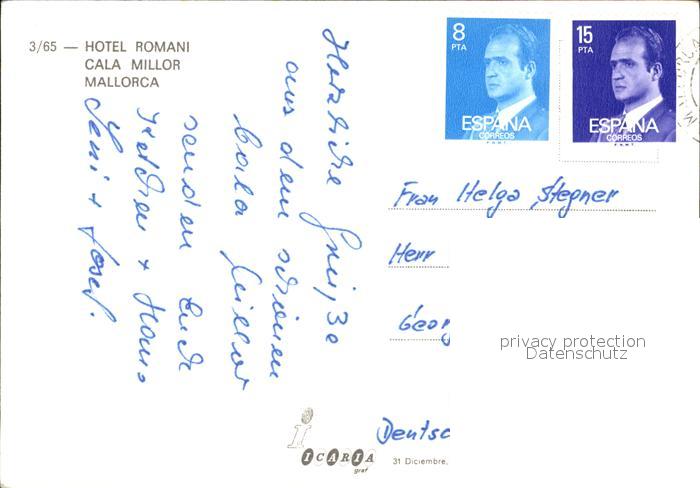 3/65 — HOTEL ROMANI
CALA MILLOR
MALLORCA
Herzliche Grüße
aus dem schönen
Cala Millor
senden Euch
Käthchen + Hans
Leni + Josef.
8
PTA
ESPAÑA
CORREOS
F.N.M.T.
15
PTA
ESPAÑA
CORREOS
F.N.M.T.
MALLORCA
Frau Helga Stegner
Herr
Georg
privacy protection
Datenschutz
Deutsc
ICARIA
graf
31 Diciembre,